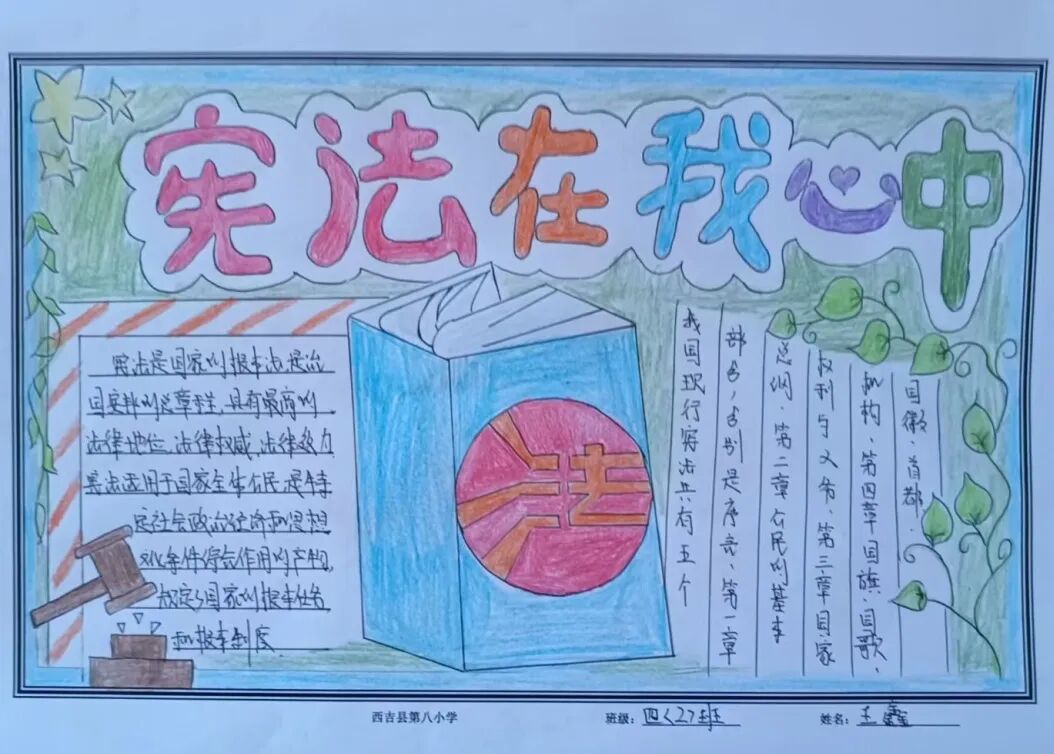 宪法在我心中
宪法是国家的根本法,是治
国安邦的总章程,具有最高的
法律地位,法律权威,法律效力
宪法适用于国家全体公民,是特
定社会政治经济和思想
文化条件综合作用的产物,
规定了国家的根本任务
和根本制度.
法
我国现行宪法共有五个
部分,分别是序言、第一章
总纲、第二章公民的基本
权利与义务、第三章国家
机构、第四章国旗、国歌、
国徽、首都.
西吉县第八小学
班级: 四(2)班
姓名: 王鑫